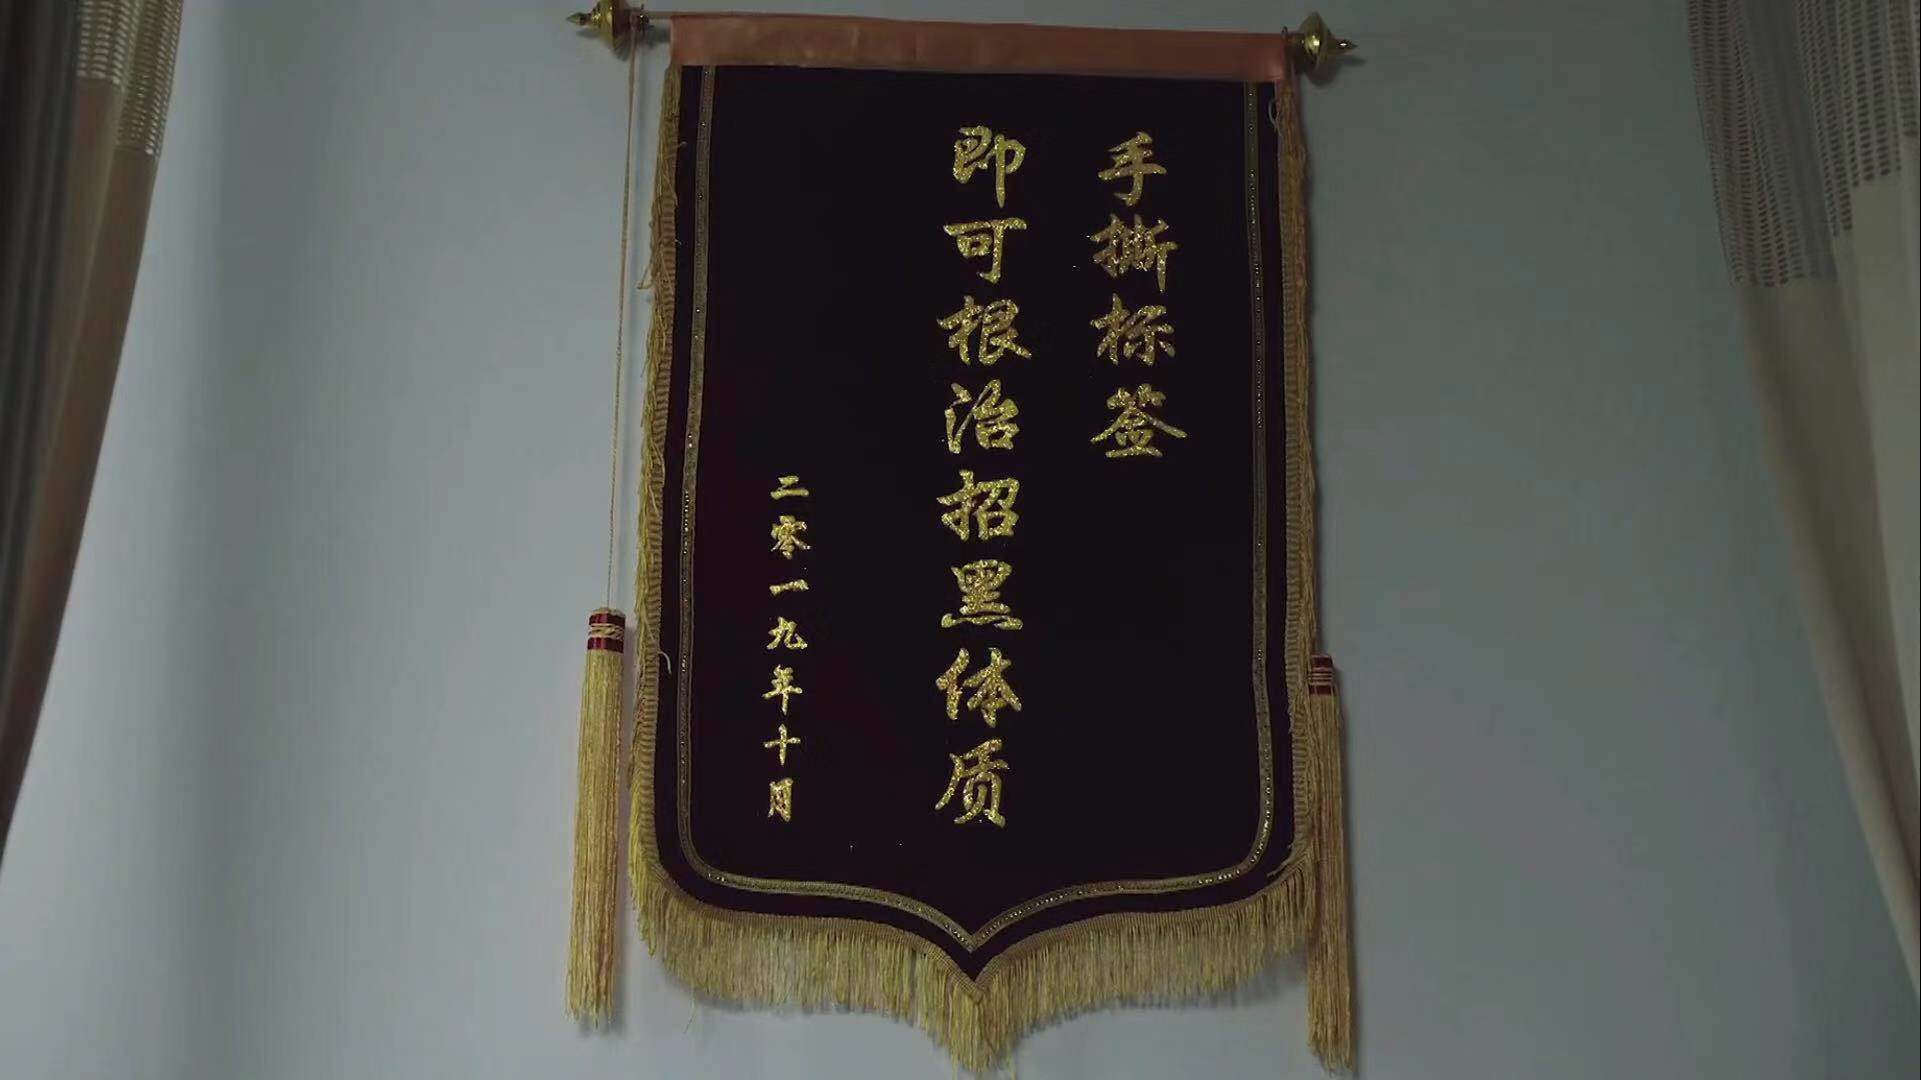 手撕标签
即可根治招黑体质
二零一九年十月